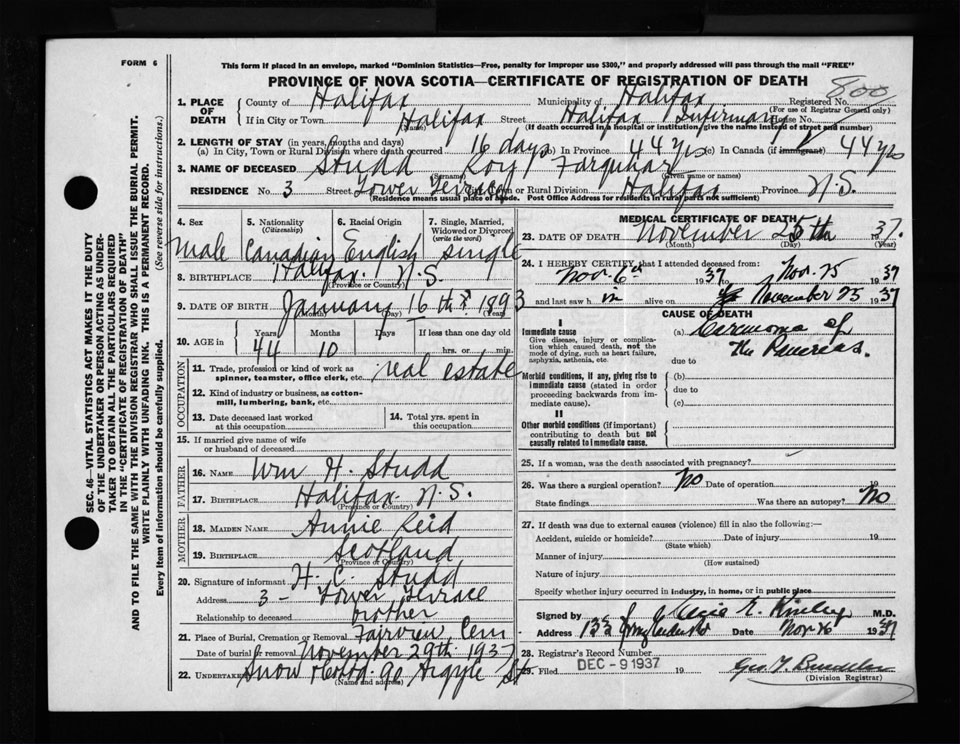 FORM 6
This form if placed in an envelope, marked "Dominion Statistics—Free, penalty for improper use $300," and properly addressed will pass through the mail "FREE"
PROVINCE OF NOVA SCOTIA—CERTIFICATE OF REGISTRATION OF DEATH
800
1. PLACE OF DEATH County of Halifax Municipality of Halifax Registered No.
(For use of Registrar General only)
If in City or Town Halifax Street Halifax Infirmary House No.
(Name) (If death occurred in a hospital or institution, give the name instead of street and number)
2. LENGTH OF STAY (in years, months and days)
(a) In City, Town or Rural Division where death occurred 16 days (b) In Province 44 yrs (c) In Canada (if immigrant) 44 yrs
3. NAME OF DECEASED Studd Roy Farquhar
(Surname) (Given name or names)
RESIDENCE No. 3 Street Tower Terrace City, Town or Rural Division Halifax Province N.S.
(Residence means usual place of abode. Post Office Address for residents in rural parts not sufficient)
4. Sex
Male
5. Nationality (Citizenship)
Canadian
6. Racial Origin
English
7. Single, Married, Widowed or Divorced (write the word)
Single
8. BIRTHPLACE Halifax, N.S.
(Province or Country)
9. DATE OF BIRTH January 16th 1893
(Month) (Day) (Year)
10. AGE in Years 44 Months 10 Days If less than one day old hrs. or min.
OCCUPATION
11. Trade, profession or kind of work as spinner, teamster, office clerk, etc. real estate
12. Kind of industry or business, as cotton-mill, lumbering, bank, etc.
13. Date deceased last worked at this occupation
14. Total yrs. spent in this occupation
15. If married give name of wife or husband of deceased
FATHER
16. NAME Wm H. Studd
17. BIRTHPLACE Halifax. N.S.
MOTHER
18. MAIDEN NAME Annie Reid
19. BIRTHPLACE Scotland
(Province or Country)
20. Signature of informant H. C. Studd
Address 3 - Tower Terrace
Relationship to deceased brother
21. Place of Burial, Cremation or Removal Fairview Cem
Date of burial or removal November 29th 1937
22. UNDERTAKER Snow 90 Argyle St
(Name and address)
MEDICAL CERTIFICATE OF DEATH
23. DATE OF DEATH November 25th 1937.
(Month) (Day) (Year)
24. I HEREBY CERTIFY that I attended deceased from:
Nov. 6th 1937 to Nov. 25 1937
and last saw him alive on November 25 1937
CAUSE OF DEATH
I
Immediate cause
Give disease, injury or complication which caused death, not the mode of dying, such as heart failure, asphyxia, asthenia, etc.
(a) Carcinoma of the Pancreas.
due to
Morbid conditions, if any, giving rise to immediate cause (stated in order proceeding backwards from immediate cause).
(b)
due to
(c)
II
Other morbid conditions (if important) contributing to death but not causally related to immediate cause.
25. If a woman, was the death associated with pregnancy?
26. Was there a surgical operation? No Date of operation 19
State findings Was there an autopsy? No
27. If death was due to external causes (violence) fill in also the following:—
Accident, suicide or homicide? Date of injury 19
(State which)
Manner of injury
(How sustained)
Nature of injury
Specify whether injury occurred in industry, in home, or in public place
Signed by M.D.
Address Date Nov 26 1937
28. Registrar's Record Number
29. Filed DEC - 9 1937 19
(Division Registrar)
SEC. 46—VITAL STATISTICS ACT MAKES IT THE DUTY
OF THE UNDERTAKER OR PERSON ACTING AS UNDER-
TAKER TO OBTAIN ALL THE PARTICULARS REQUIRED
IN THE "CERTIFICATE OF REGISTRATION OF DEATH"
AND TO FILE THE SAME WITH THE DIVISION REGISTRAR WHO SHALL ISSUE THE BURIAL PERMIT.
WRITE PLAINLY WITH UNFADING INK. THIS IS A PERMANENT RECORD.
Every item of information should be carefully supplied. (See reverse side for instructions.)